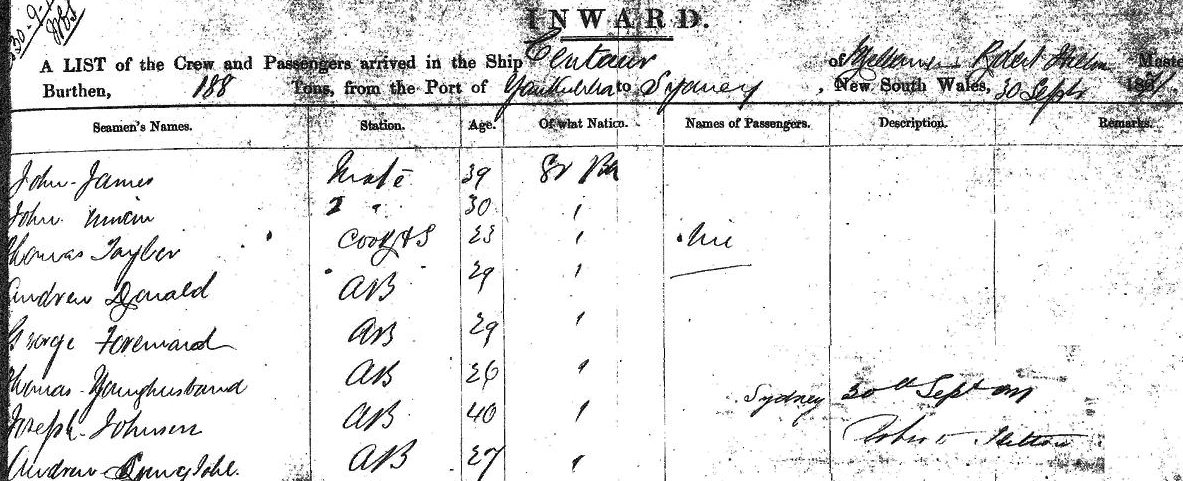 30-9-
INWARD.
A LIST of the Crew and Passengers arrived in the Ship Centaur of Melbourne Robert Master
Burthen, 188 Tons, from the Port of to Sydney, New South Wales, 30 Septr 187
Seamen's Names. Station. Age. Of what Nation. Names of Passengers. Description. Remarks.
John James Mate 39 Gr Br
John 2 " 30 "
Thomas Taylor Cook & S 23 " Nil
Andrew Donald AB 29 "
George AB 29 "
Thomas Younghusband AB 26 "
Sydney 30th Sept
Joseph Johnson AB 40 "
Andrew AB 27 "